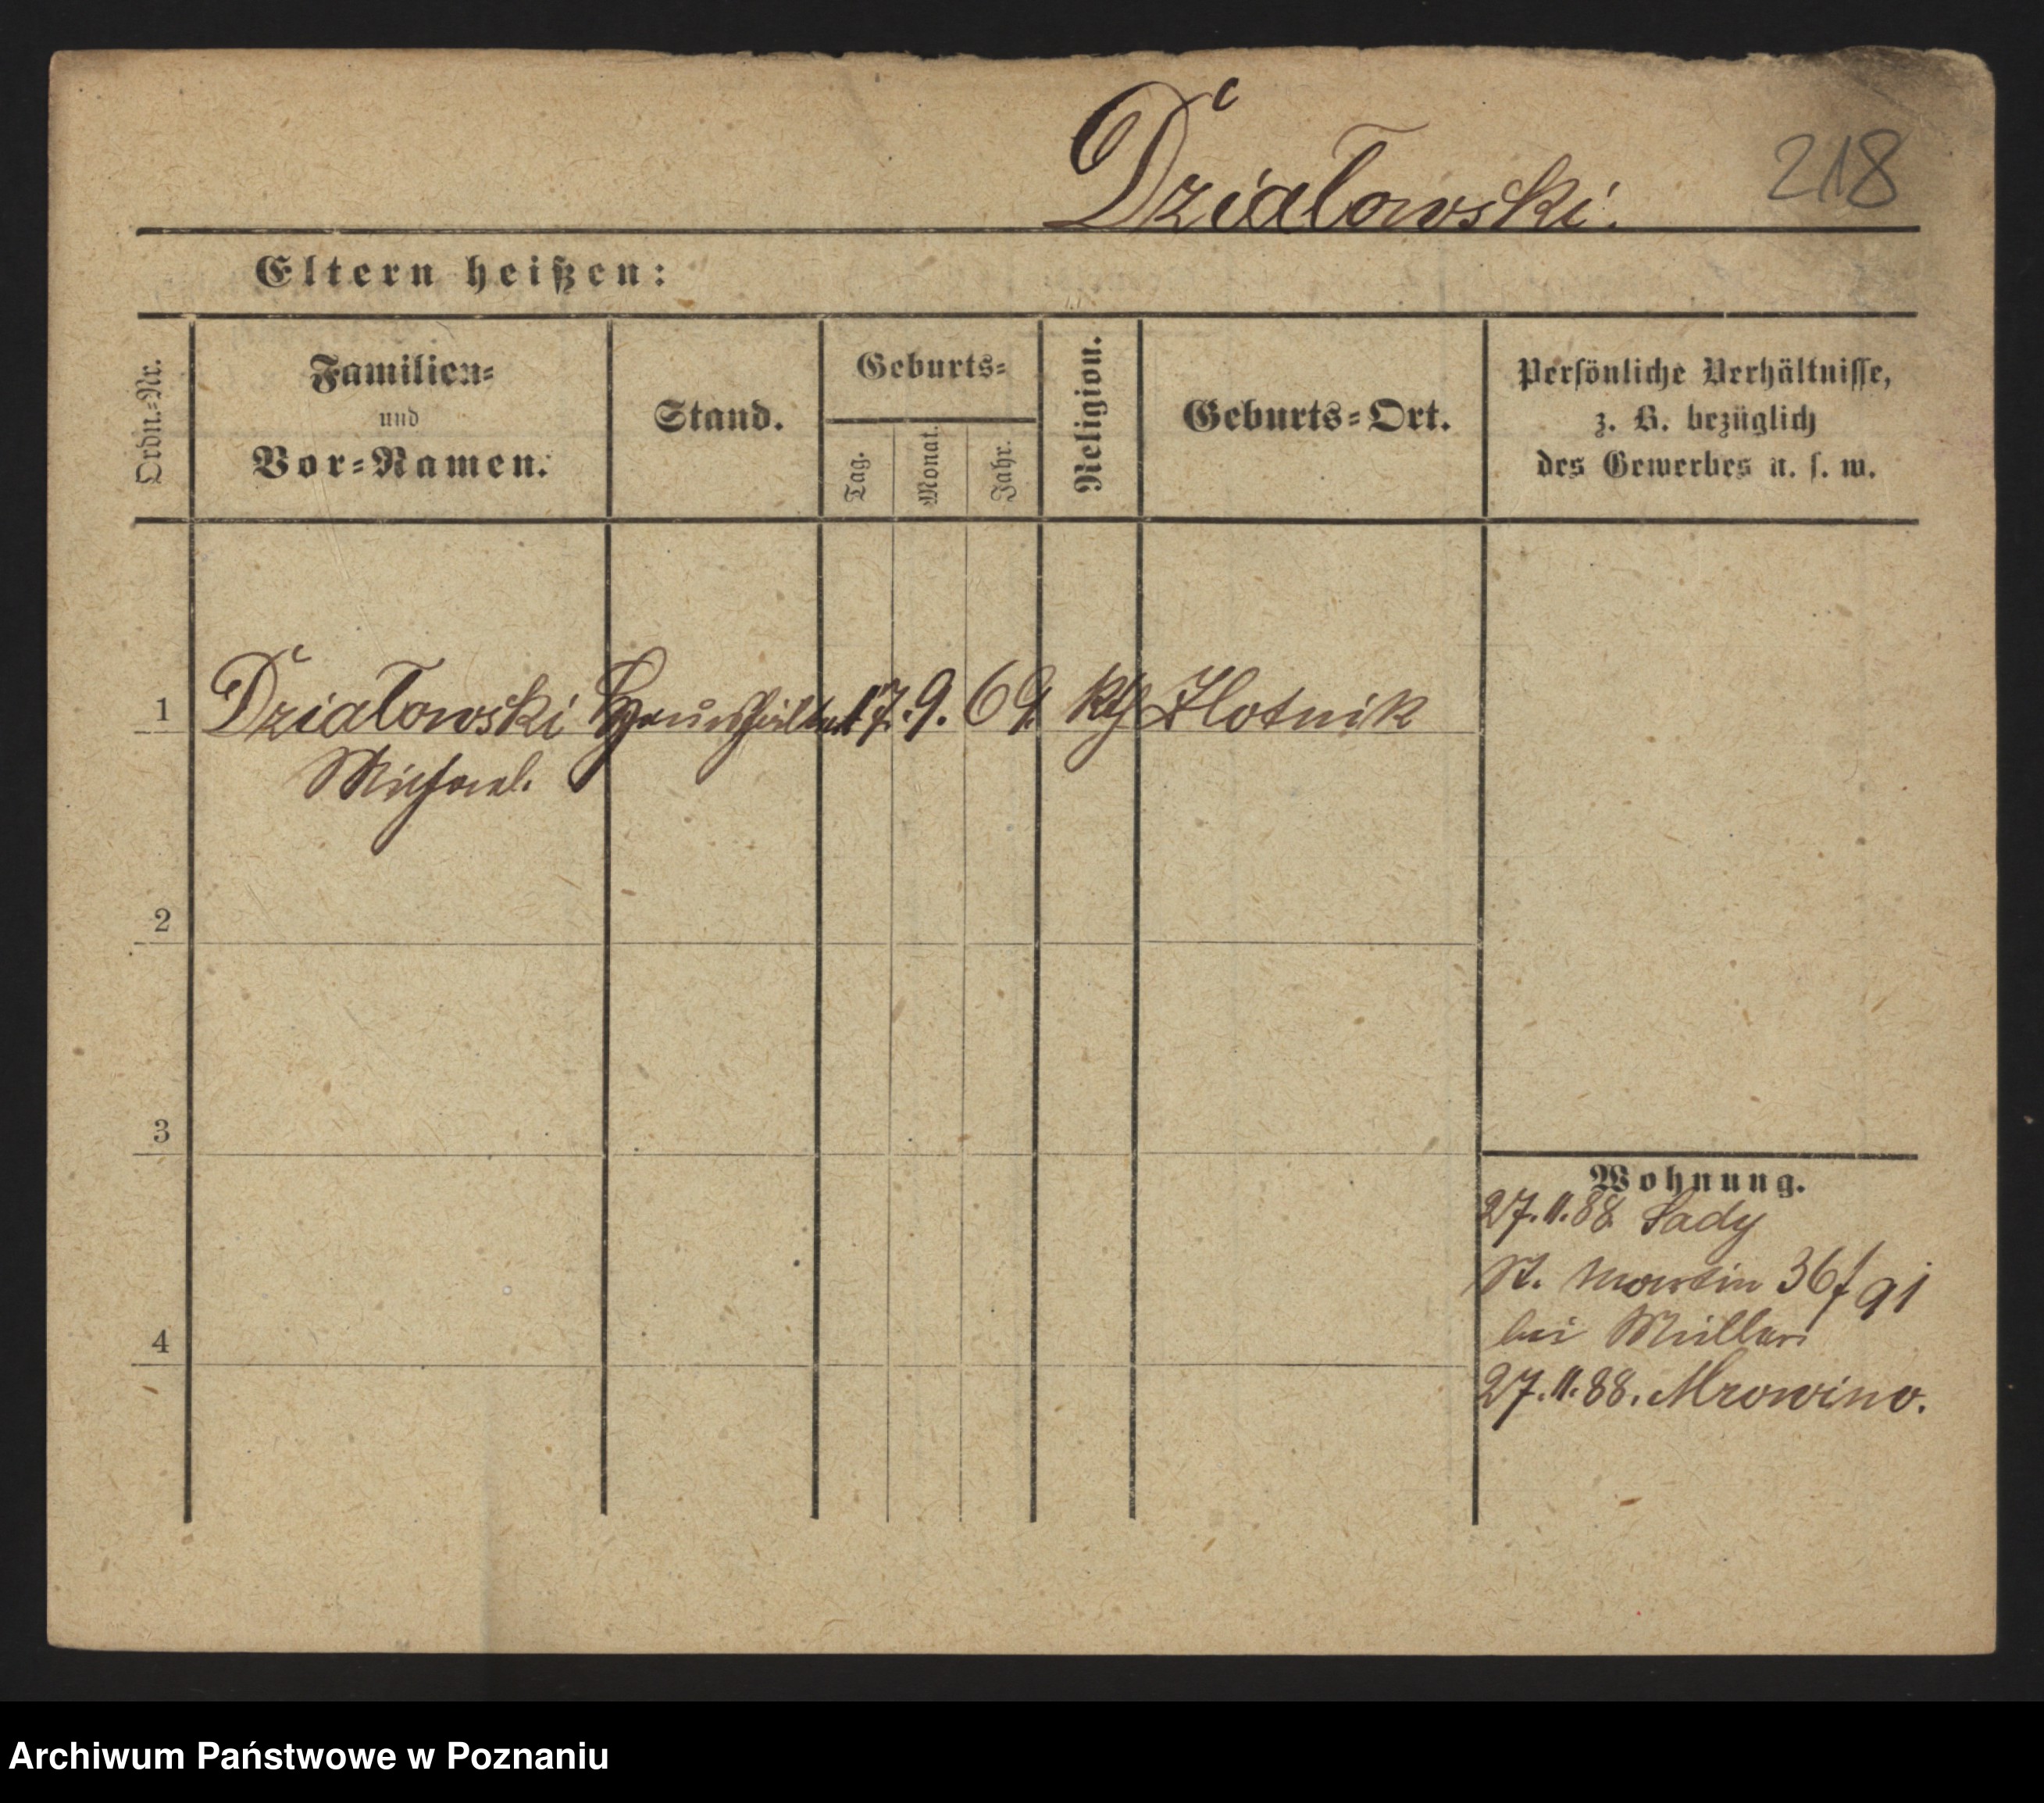 Działowski.
218
Eltern heißen:
Ordn.-Nr.
Familien-
und
Vor-Namen.
Stand.
Geburts-
Tag.
Monat.
Jahr.
Religion.
Geburts-Ort.
Persönliche Verhältnisse,
z. B. bezüglich
des Gewerbes u. s. w.
1 Działowski Haushälter 17. 9. 69. kth Zlotnik
Michael.
2
3
4
Wohnung.
27.11.88 Sady
St. Martin 36
bei Müller
27.11.88. Mrowino.
Archiwum Państwowe w Poznaniu